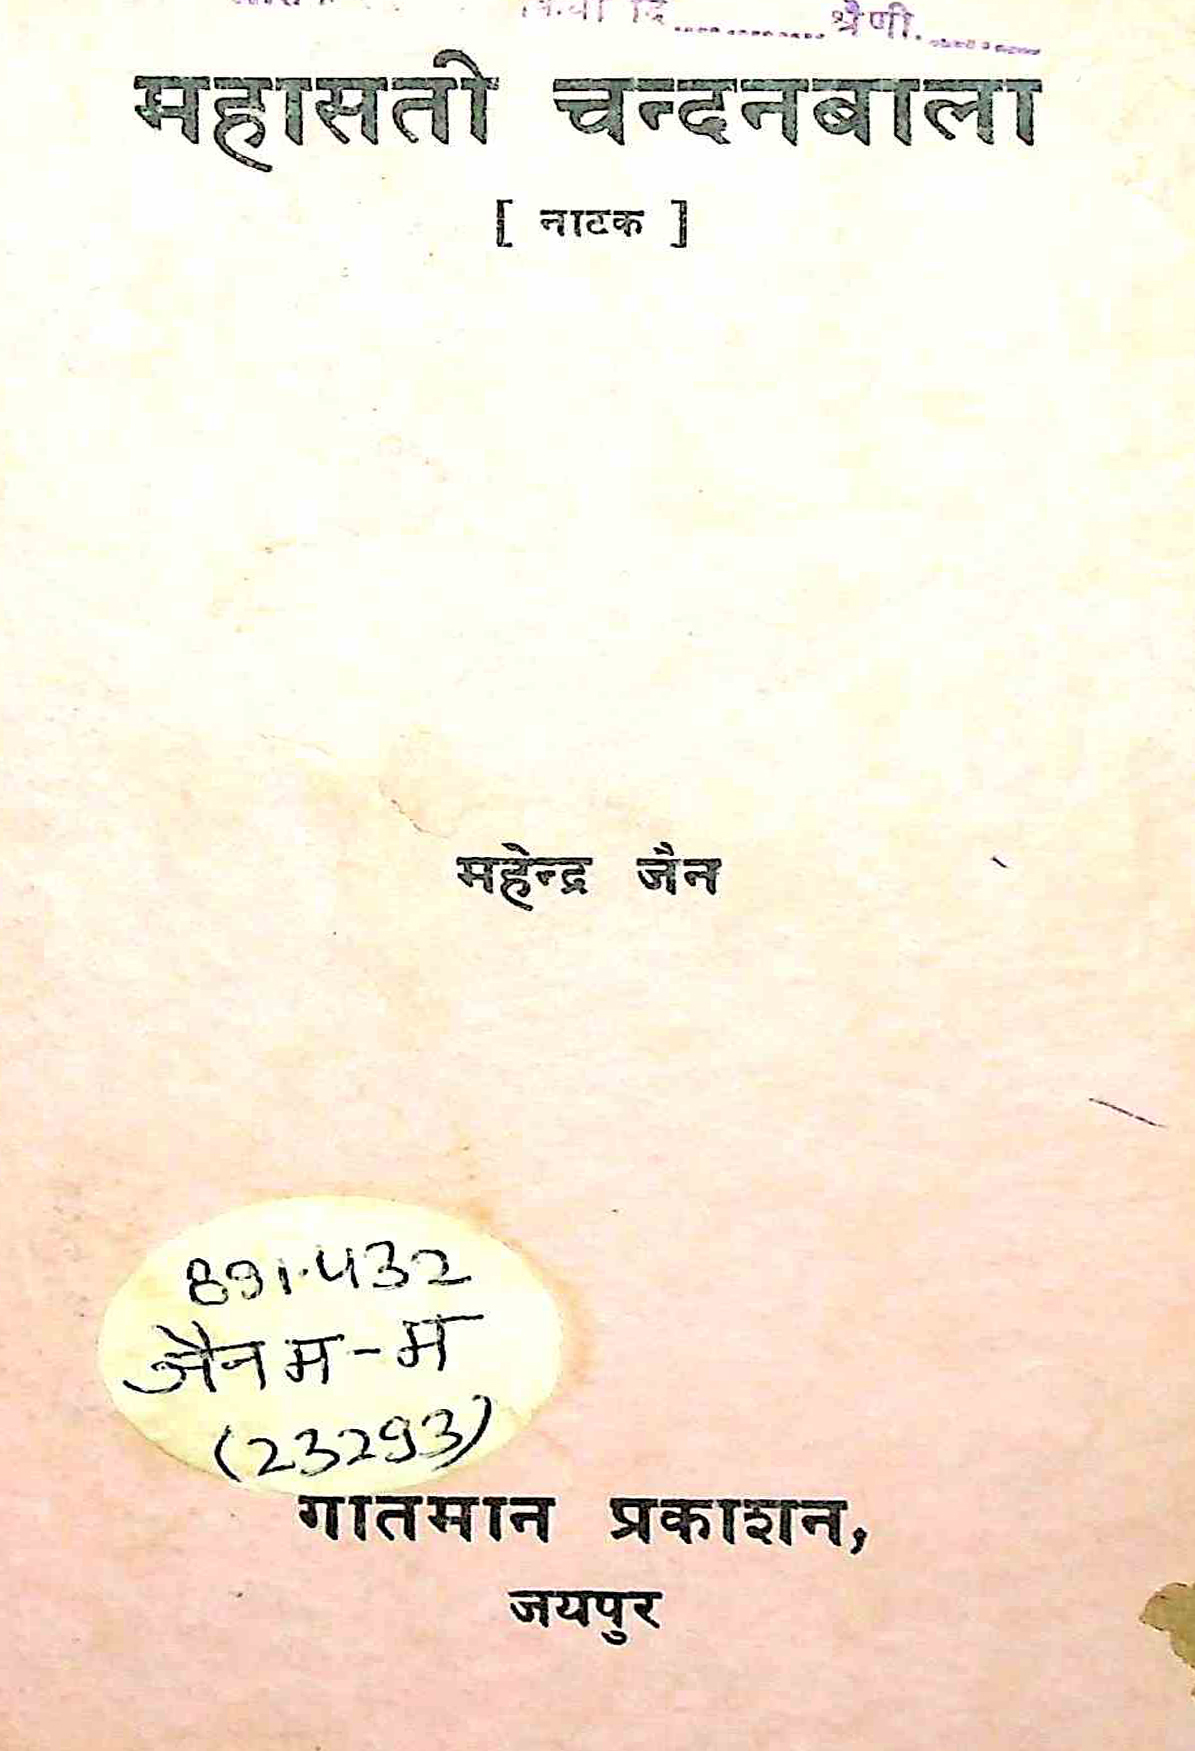 श्रेणी.
महासती चन्दनबाला
[ नाटक ]
महेन्द्र जैन
891.432
जैन म-म
(23293)
गातमान प्रकाशन,
जयपुर